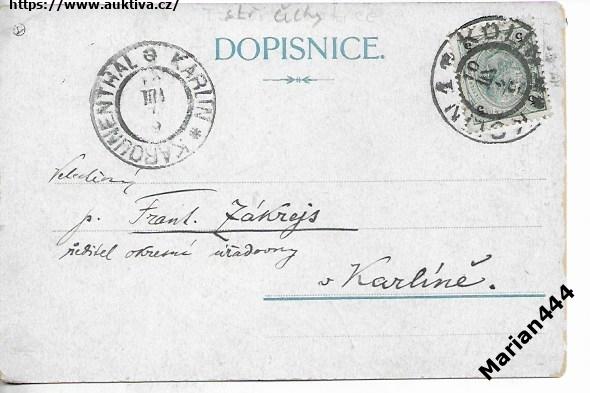 https://www.auktiva.cz/
stř. Čechy
DOPISNICE.
KARLIN * KAROLINENTHAL
KOLIN 1 * KOLÍN
Veledůstojný
p. Frant. Zákrejs
ředitel okresní úřadovny
v Karlíně.
Marian444